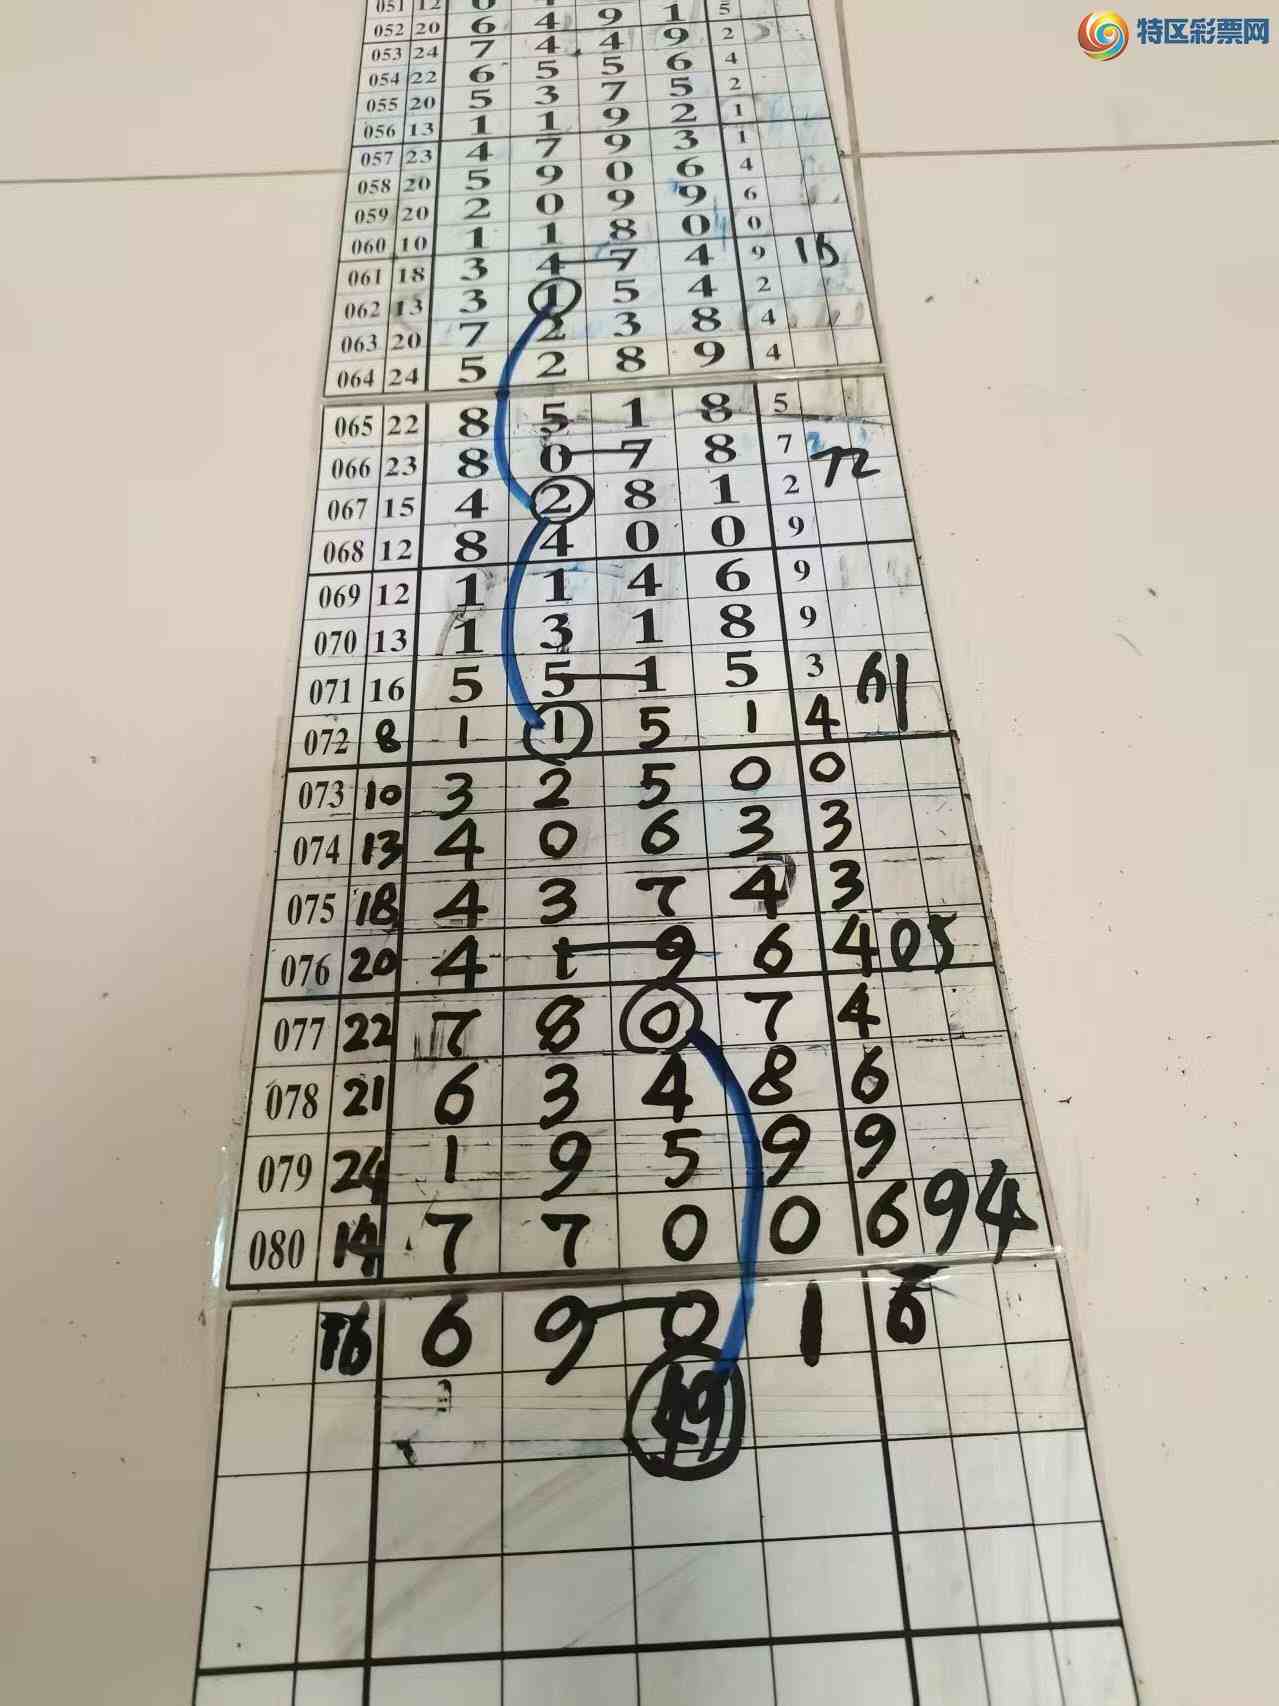 特区彩票网
051 12 5
052 20 6 4 9 1 2
053 24 7 4 4 9
054 22 6 5 5 6 4
055 20 5 3 7 5 2
056 13 1 1 9 2 1
057 23 4 7 9 3 1
058 20 5 9 0 6 4
059 20 2 0 9 9 6
060 10 1 1 8 0 0
061 18 3 4 7 4 9
062 13 3 1 5 4 2
063 20 7 2 3 8 4
064 24 5 2 8 9 4
065 22 8 5 1 8 5
066 23 8 0 7 8 7 72
067 15 4 2 8 1 2
068 12 8 4 0 0 9
069 12 1 1 4 6 9
070 13 1 3 1 8 9
071 16 5 5 1 5 3 61
072 8 1 1 5 1 4
073 10 3 2 5 0 0
074 13 4 0 6 3 3
075 18 4 3 7 4 3
076 20 4 1 9 6 4 05
077 22 7 8 0 7 4
078 21 6 3 4 8 6
079 24 1 9 5 9 9
080 14 7 7 0 0 6 94
16 6 9 0 1 6
49